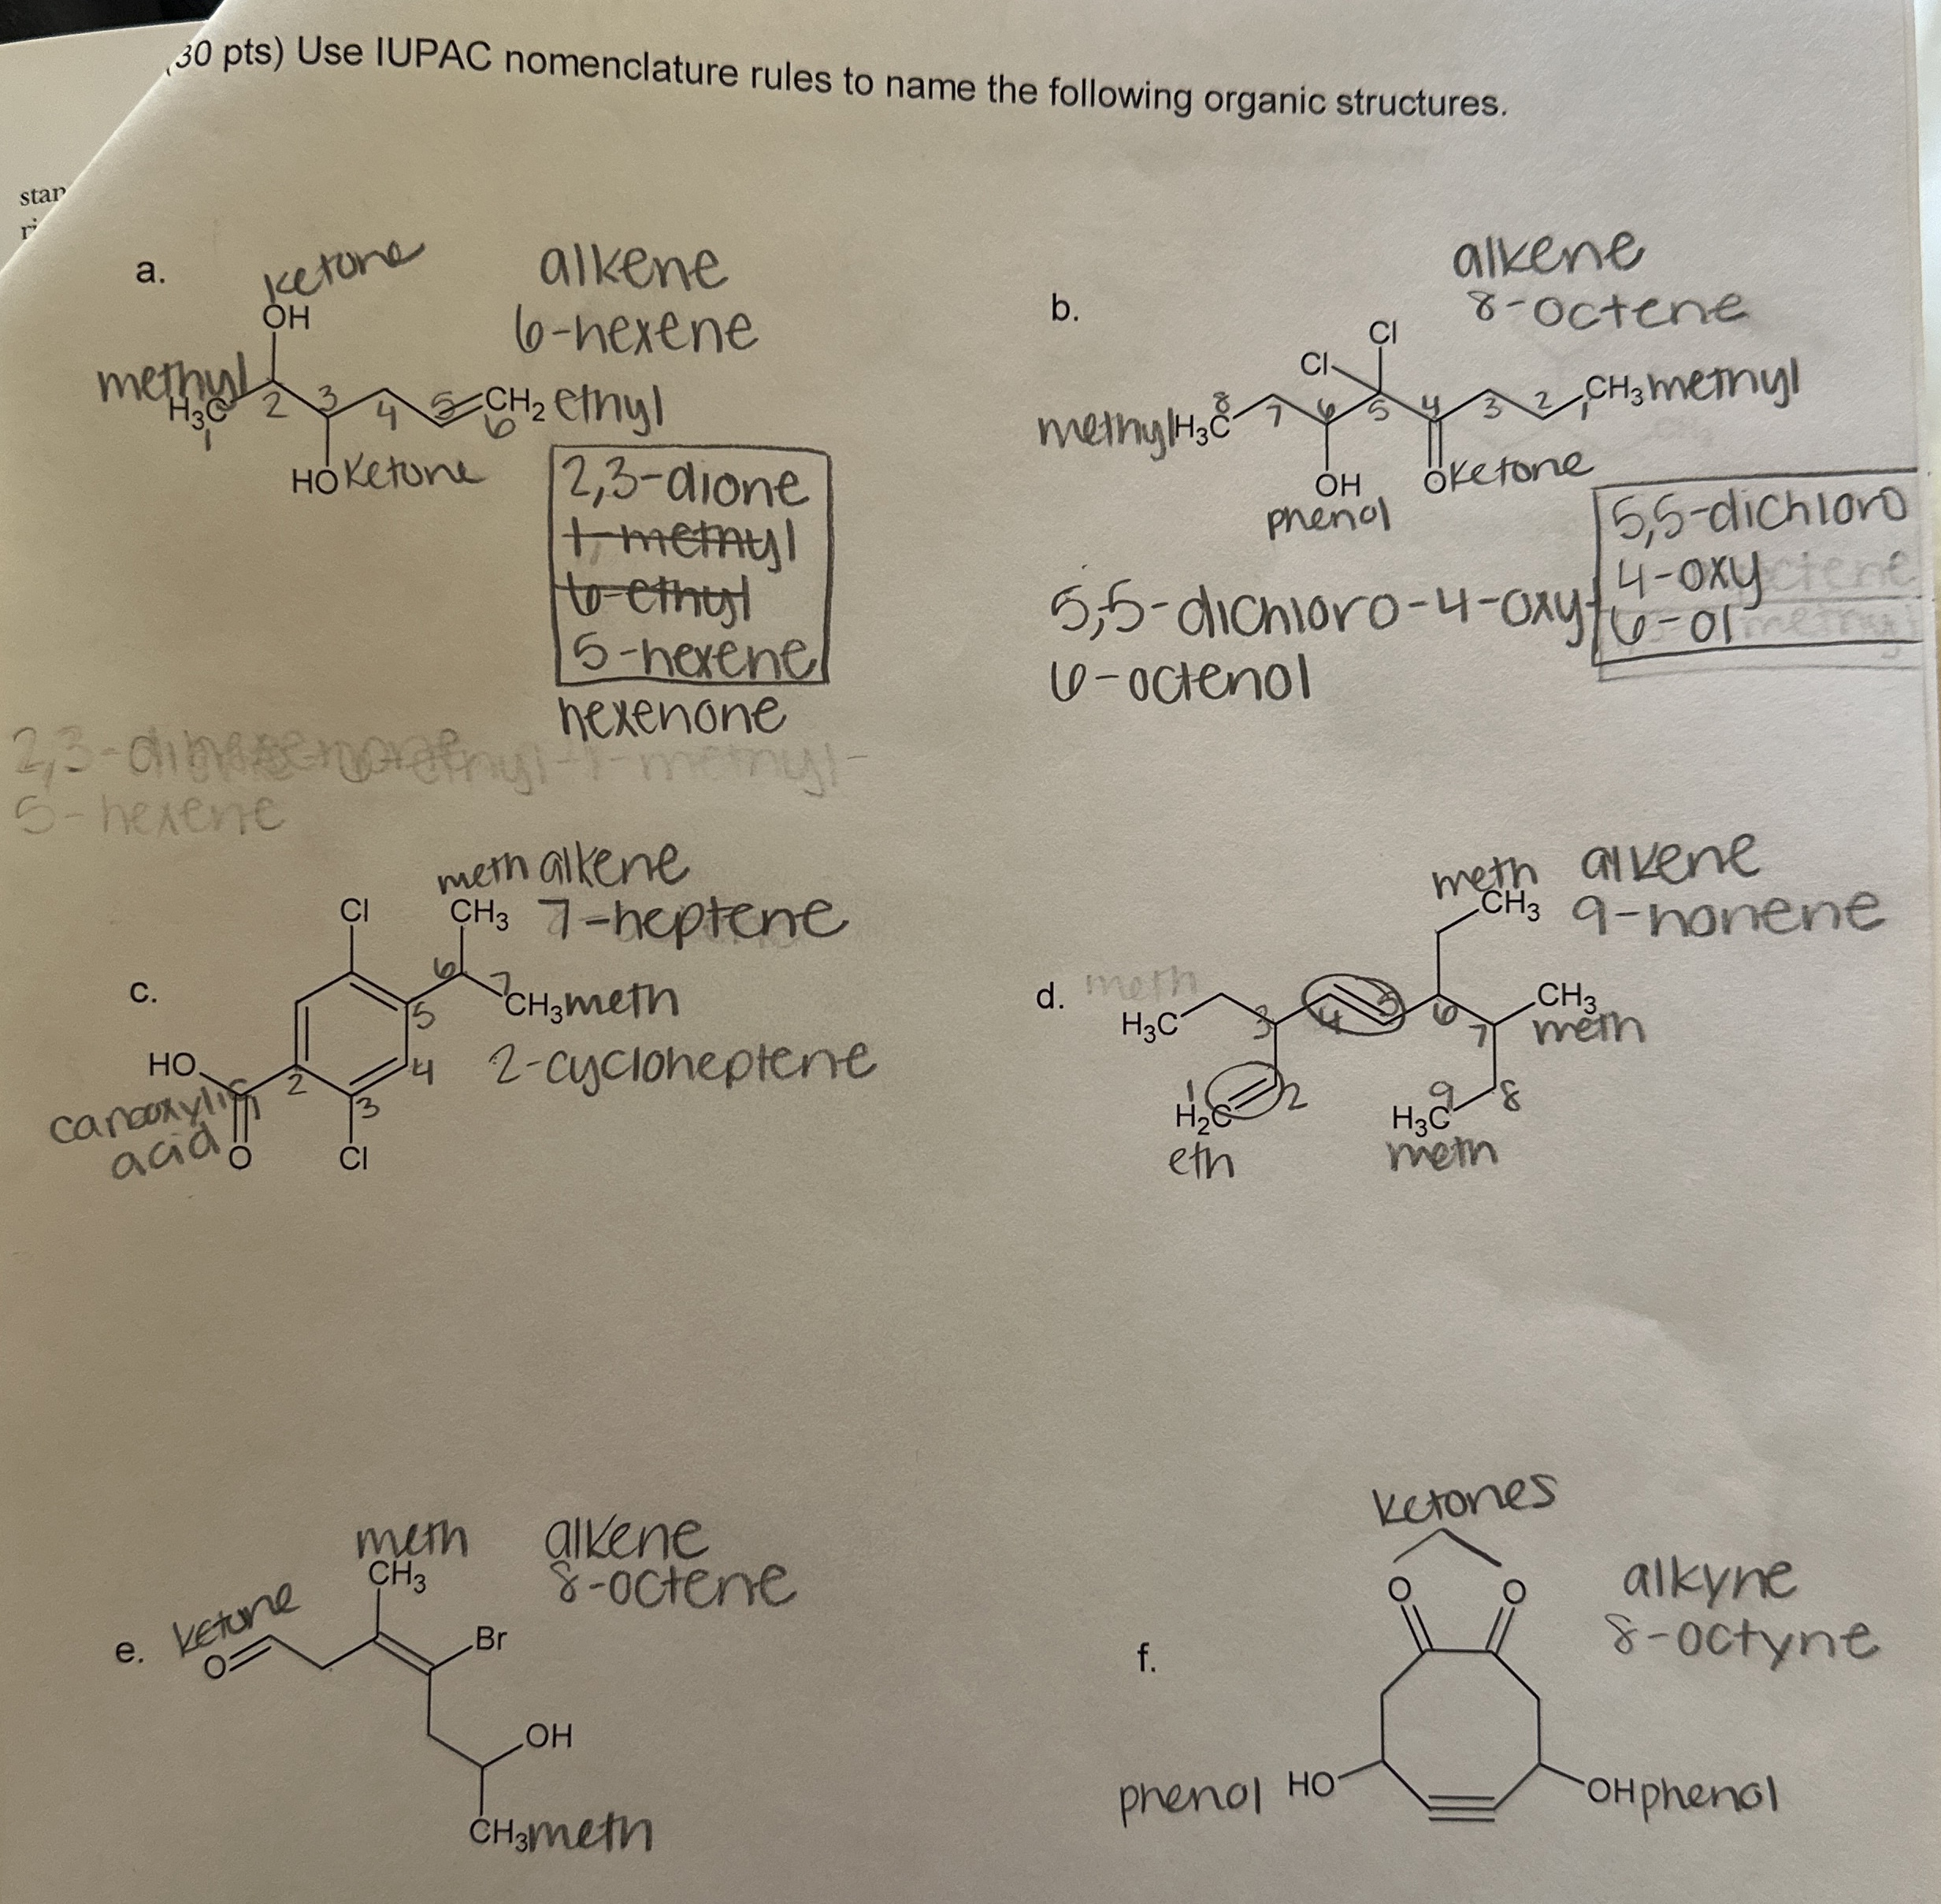 30 pts) Use IUPAC nomenclature rules to name the following organic structures.
stan
ri
a.
ketone
OH
alkene
6-hexene
methyl
H3C
1
2
3
4
5
6
CH2 ethyl
HO ketone
2,3-dione
1-methyl
6-ethyl
5-hexene
hexenone
5-hexene
b.
alkene
8-octene
Cl
Cl
methyl H3C
8
7
6
5
4
3
2
1
CH3 methyl
OH
phenol
O ketone
5,5-dichloro
4-oxy
6-ol
5,5-dichloro-4-oxy-
6-octenol
c.
meth alkene
CH3 7-heptene
Cl
6
7
CH3 meth
5
4
2-cycloheptene
HO
2
3
1
carboxylic
acid
O
Cl
d.
meth
meth alkene
CH3 9-nonene
H3C
3
4
5
6
7
CH3
meth
1
2
H2C
eth
9
8
H3C
meth
e.
meth alkene
CH3 8-octene
ketone
O
Br
OH
CH3 meth
f.
ketones
O O
alkyne
8-octyne
phenol HO
OH phenol